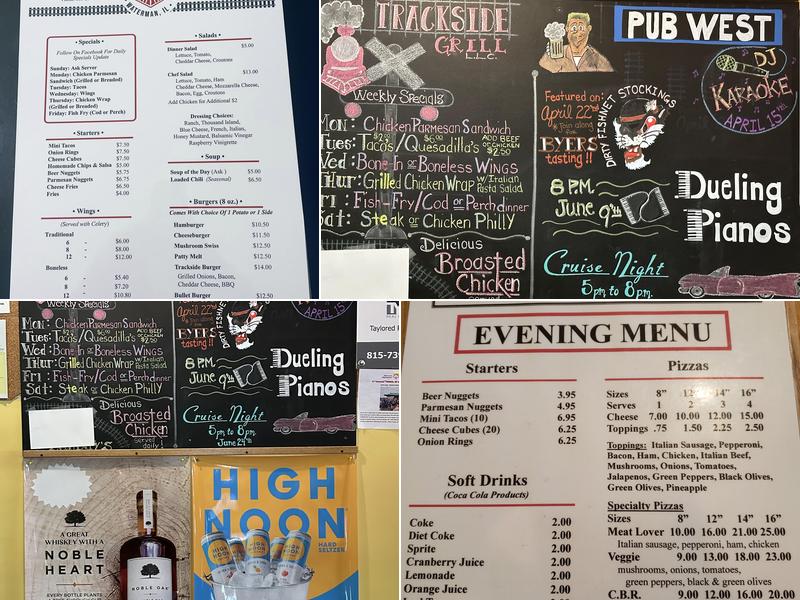 WATERMAN, IL.
• Specials •
Follow On Facebook For Daily
Specials Update
Sunday: Ask Server
Monday: Chicken Parmesan
Sandwich (Grilled or Breaded)
Tuesday: Tacos
Wednesday: Wings
Thursday: Chicken Wrap
(Grilled or Breaded)
Friday: Fish Fry (Cod or Perch)
• Starters •
Mini Tacos $7.50
Onion Rings $7.50
Cheese Cubes $7.50
Homemade Chips & Salsa $5.00
Beer Nuggets $5.75
Parmesan Nuggets $6.75
Cheese Fries $6.50
Fries $4.00
• Wings •
(Served with Celery)
Traditional
6 - $6.00
8 - $8.00
12 - $12.00
Boneless
6 - $5.40
8 - $7.20
12 - $10.80
• Salads •
Dinner Salad $5.00
Lettuce, Tomato,
Cheddar Cheese, Croutons
Chef Salad $13.00
Lettuce, Tomato, Ham
Cheddar Cheese, Mozzarella Cheese,
Bacon, Egg, Croutons
Add Chicken for Additional $2
Dressing Choices:
Ranch, Thousand Island,
Blue Cheese, French, Italian,
Honey Mustard, Balsamic Vinegar
Raspberry Vinigrette
• Soup •
Soup of the Day (Ask ) $5.00
Loaded Chili (Seasonal) $6.50
• Burgers (8 oz.) •
Comes With Choice Of 1 Potato or 1 Side
Hamburger $10.50
Cheeseburger $11.50
Mushroom Swiss $12.50
Patty Melt $12.50
Trackside Burger $14.00
Grilled Onions, Bacon,
Cheddar Cheese, BBQ
Bullet Burger $12.50
TRACKSIDE
GRILL
L.L.C.
Weekly Specials
Mon: Chicken Parmesan Sandwich
Tues: Tacos/Quesadilla's ADD BEEF OR CHICKEN $2.50
Wed: Bone-In or Boneless Wings
Thur: Grilled Chicken Wrap w/Italian Pasta Salad
Fri: Fish-Fry/Cod or Perch dinner
Sat: Steak or Chicken Philly
Delicious
Broasted
Chicken
PUB WEST
DJ
KARAOKE
APRIL 15
Featured on:
April 22nd
BYERS
tasting !!
DIRTY FISHNET STOCKINGS
8 P.M.
June 9th
Dueling
Pianos
Cruise Night
5pm to 8pm.
Weekly Specials
Mon: Chicken Parmesan Sandwich
Tues: Tacos/Quesadilla's
Wed: Bone-In or Boneless Wings
Thur: Grilled Chicken Wrap w/Italian Pasta Salad
Fri: Fish-Fry/Cod or Perch dinner
Sat: Steak or Chicken Philly
Delicious
Broasted
Chicken
served
daily!
APRIL 15
April 22nd
BYERS
tasting !!
DIRTY FISHNET
8 P.M.
June 9th
Dueling
Pianos
Cruise Night
5pm to 8pm.
June 24th
Taylored
815-73
A GREAT
WHISKEY WITH A
NOBLE
HEART
EVERY BOTTLE PLANTS
NOBLE OAK
HIGH
NOON
HARD
SELTZER
EVENING MENU
Starters
Beer Nuggets 3.95
Parmesan Nuggets 4.95
Mini Tacos (10) 6.95
Cheese Cubes (20) 6.25
Onion Rings 6.25
Soft Drinks
(Coca Cola Products)
Coke 2.00
Diet Coke 2.00
Sprite 2.00
Cranberry Juice 2.00
Lemonade 2.00
Orange Juice 2.00
2.00
Pizzas
Sizes 8” 12” 14” 16”
Serves 1 2 3 4
Cheese 7.00 10.00 12.00 15.00
Toppings .75 1.50 2.25 2.50
Toppings: Italian Sausage, Pepperoni,
Bacon, Ham, Chicken, Italian Beef,
Mushrooms, Onions, Tomatoes,
Jalapenos, Green Peppers, Black Olives,
Green Olives, Pineapple
Specialty Pizzas
Sizes 8” 12” 14” 16”
Meat Lover 10.00 16.00 21.00 25.00
Italian sausage, pepperoni, ham, chicken
Veggie 9.00 13.00 18.00 23.00
mushrooms, onions, tomatoes,
green peppers, black & green olives
C.B.R. 9.00 12.00 16.00 20.00